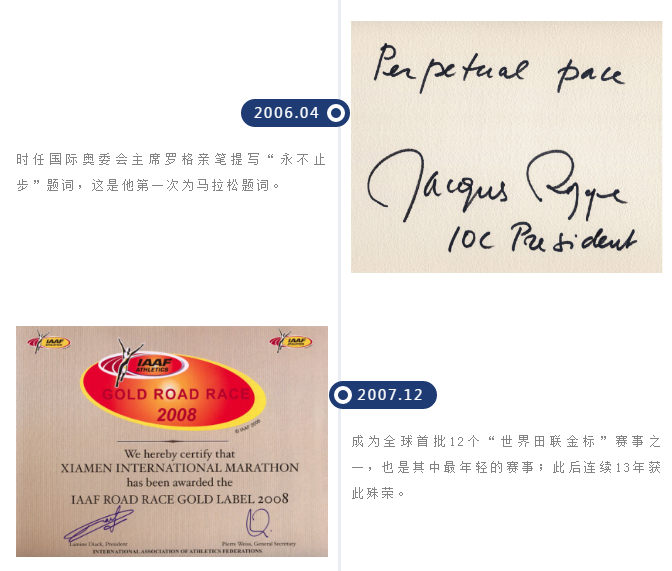 Perpetual pace
2006.04
时任国际奥委会主席罗格亲笔提写“永不止
步”题词，这是他第一次为马拉松题词。
Jacques Rogge
IOC President
IAAF
IAAF
IAAF
ATHLETICS
GOLD ROAD RACE
2008
© IAAF 2008
We hereby certify that
XIAMEN INTERNATIONAL MARATHON
has been awarded the
IAAF ROAD RACE GOLD LABEL 2008
Lamine Diack, President
Pierre Weiss, General Secretary
INTERNATIONAL ASSOCIATION OF ATHLETICS FEDERATIONS
2007.12
成为全球首批12个“世界田联金标”赛事之
一，也是其中最年轻的赛事；此后连续13年获
此殊荣。